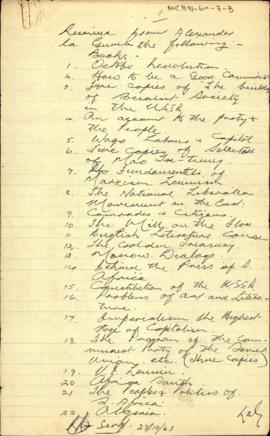 MCH91-60-7-3
Received from Alexander
la Guma the following
Books:-
1. October Revolution
2. How to be a Good Communist
3. Five copies of The building
of Socialist Society
in the USSR
4. An account to the party &
the People
5. Wage Labour & Capital
6. Five Copies of Selected
of Mao Tse-tung.
7. Fundamentals of
Marxism Leninism
8. The National Liberation
Movement in the East.
9. Comrades & Citizens
10. The Mill on the Floss
11. English Literature Course
12. The Golden Treasury
13. Moscow Dialogs.
14. Behind the Press of S.
Africa.
15. Constitution of the USSR
16. Problems of Art and Litera-
ture.
17. Imperialism the Highest
Stage of Capitalism
18. The Program of the Com-
munist Party of the Soviet
Union, etc (three copies)
19. V.I. Lenin.
20. Africa South
21. The Peoples & Politics of
S. Africa.
22. Algeria.
Sera 23/10/63